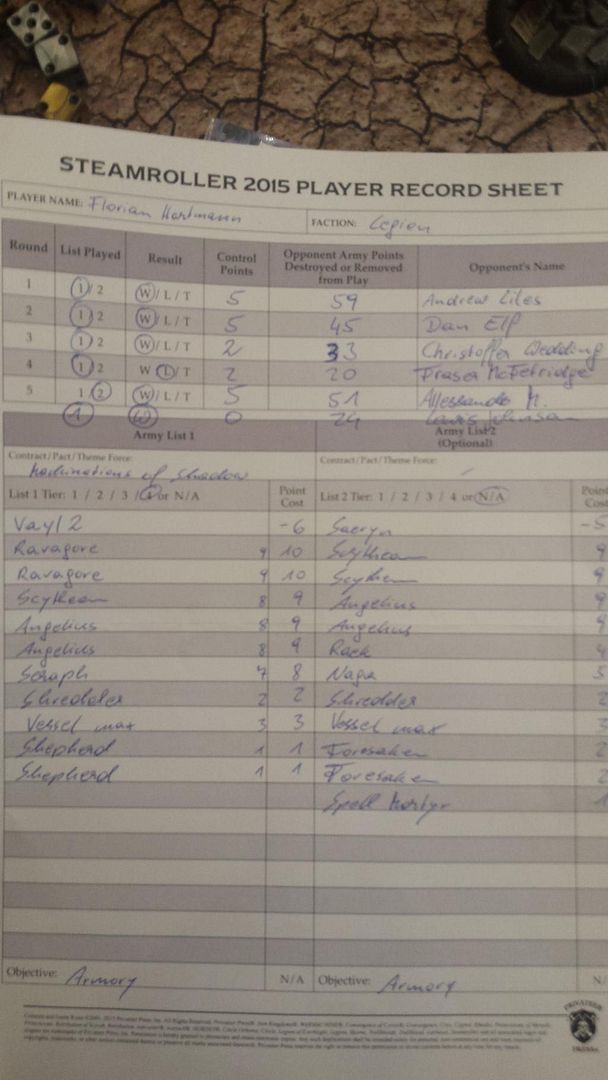 STEAMROLLER 2015 PLAYER RECORD SHEET
PLAYER NAME: Florian Hartmann FACTION: Legion
Round List Played Result Control Points Opponent Army Points Destroyed or Removed from Play Opponent's Name
1 1/2 W/L/T 5 59 Andrew Liles
2 1/2 W/L/T 5 45 Dan Elf
3 1/2 W/L/T 2 33 Christoffer Wedding
4 1/2 W L/T 2 20 Fraser McFetridge
5 1/2 W/L/T 5 51 Allessando M.
1 W 0 24 Lewis Johnson
Army List 1 Army List 2 (Optional)
Contract/Pact/Theme Force: Machinations of Shadow Contract/Pact/Theme Force:
List 1 Tier: 1 / 2 / 3 / 4 or N/A Point Cost List 2 Tier: 1 / 2 / 3 / 4 or N/A Point Cost
Vayl 2 -6 Saeryn -5
Ravagore 9 10 Scythean 9
Ravagore 9 10 Scythean 9
Scythean 8 9 Angelius 9
Angelius 8 9 Angelius 9
Angelius 8 9 Raek 4
Seraph 7 8 Naga 5
Shredder 2 2 Shredder 2
Vessel max 3 3 Vessel max 3
Shepherd 1 1 Foresaken 2
Shepherd 1 1 Foresaken 2
Spell Martyr 1
Objective: Armory N/A Objective: Armory N/
PRIVATEER PRESS